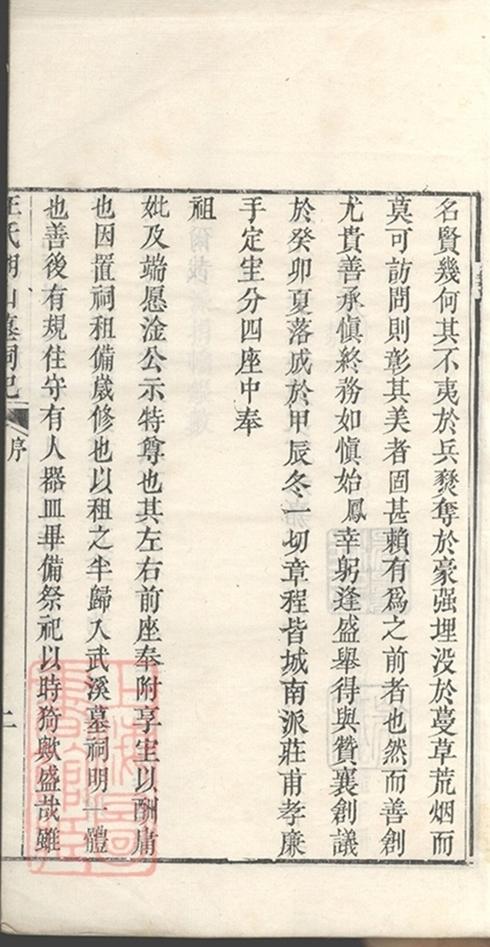 名賢幾何其不夷於兵燹奪於豪强埋没於蔓草荒烟而
莫可訪問則彰其美者固甚賴有爲之前者也然而善創
尤貴善承愼終務如愼始鳳幸躬逢盛舉得與贊襄創議
於癸卯夏落成於甲辰冬一切章程皆城南派莊甫孝廉
手定室分四座中奉
祖
妣及端愿淦公示特尊也其左右前座奉附享室以酬庸
也因置祠租備歲修也以租之半歸入武溪墓祠明一體
也善後有規住守有人器皿畢備祭祀以時猗歟盛哉雖
汪氏胡山墓祠記
序
二